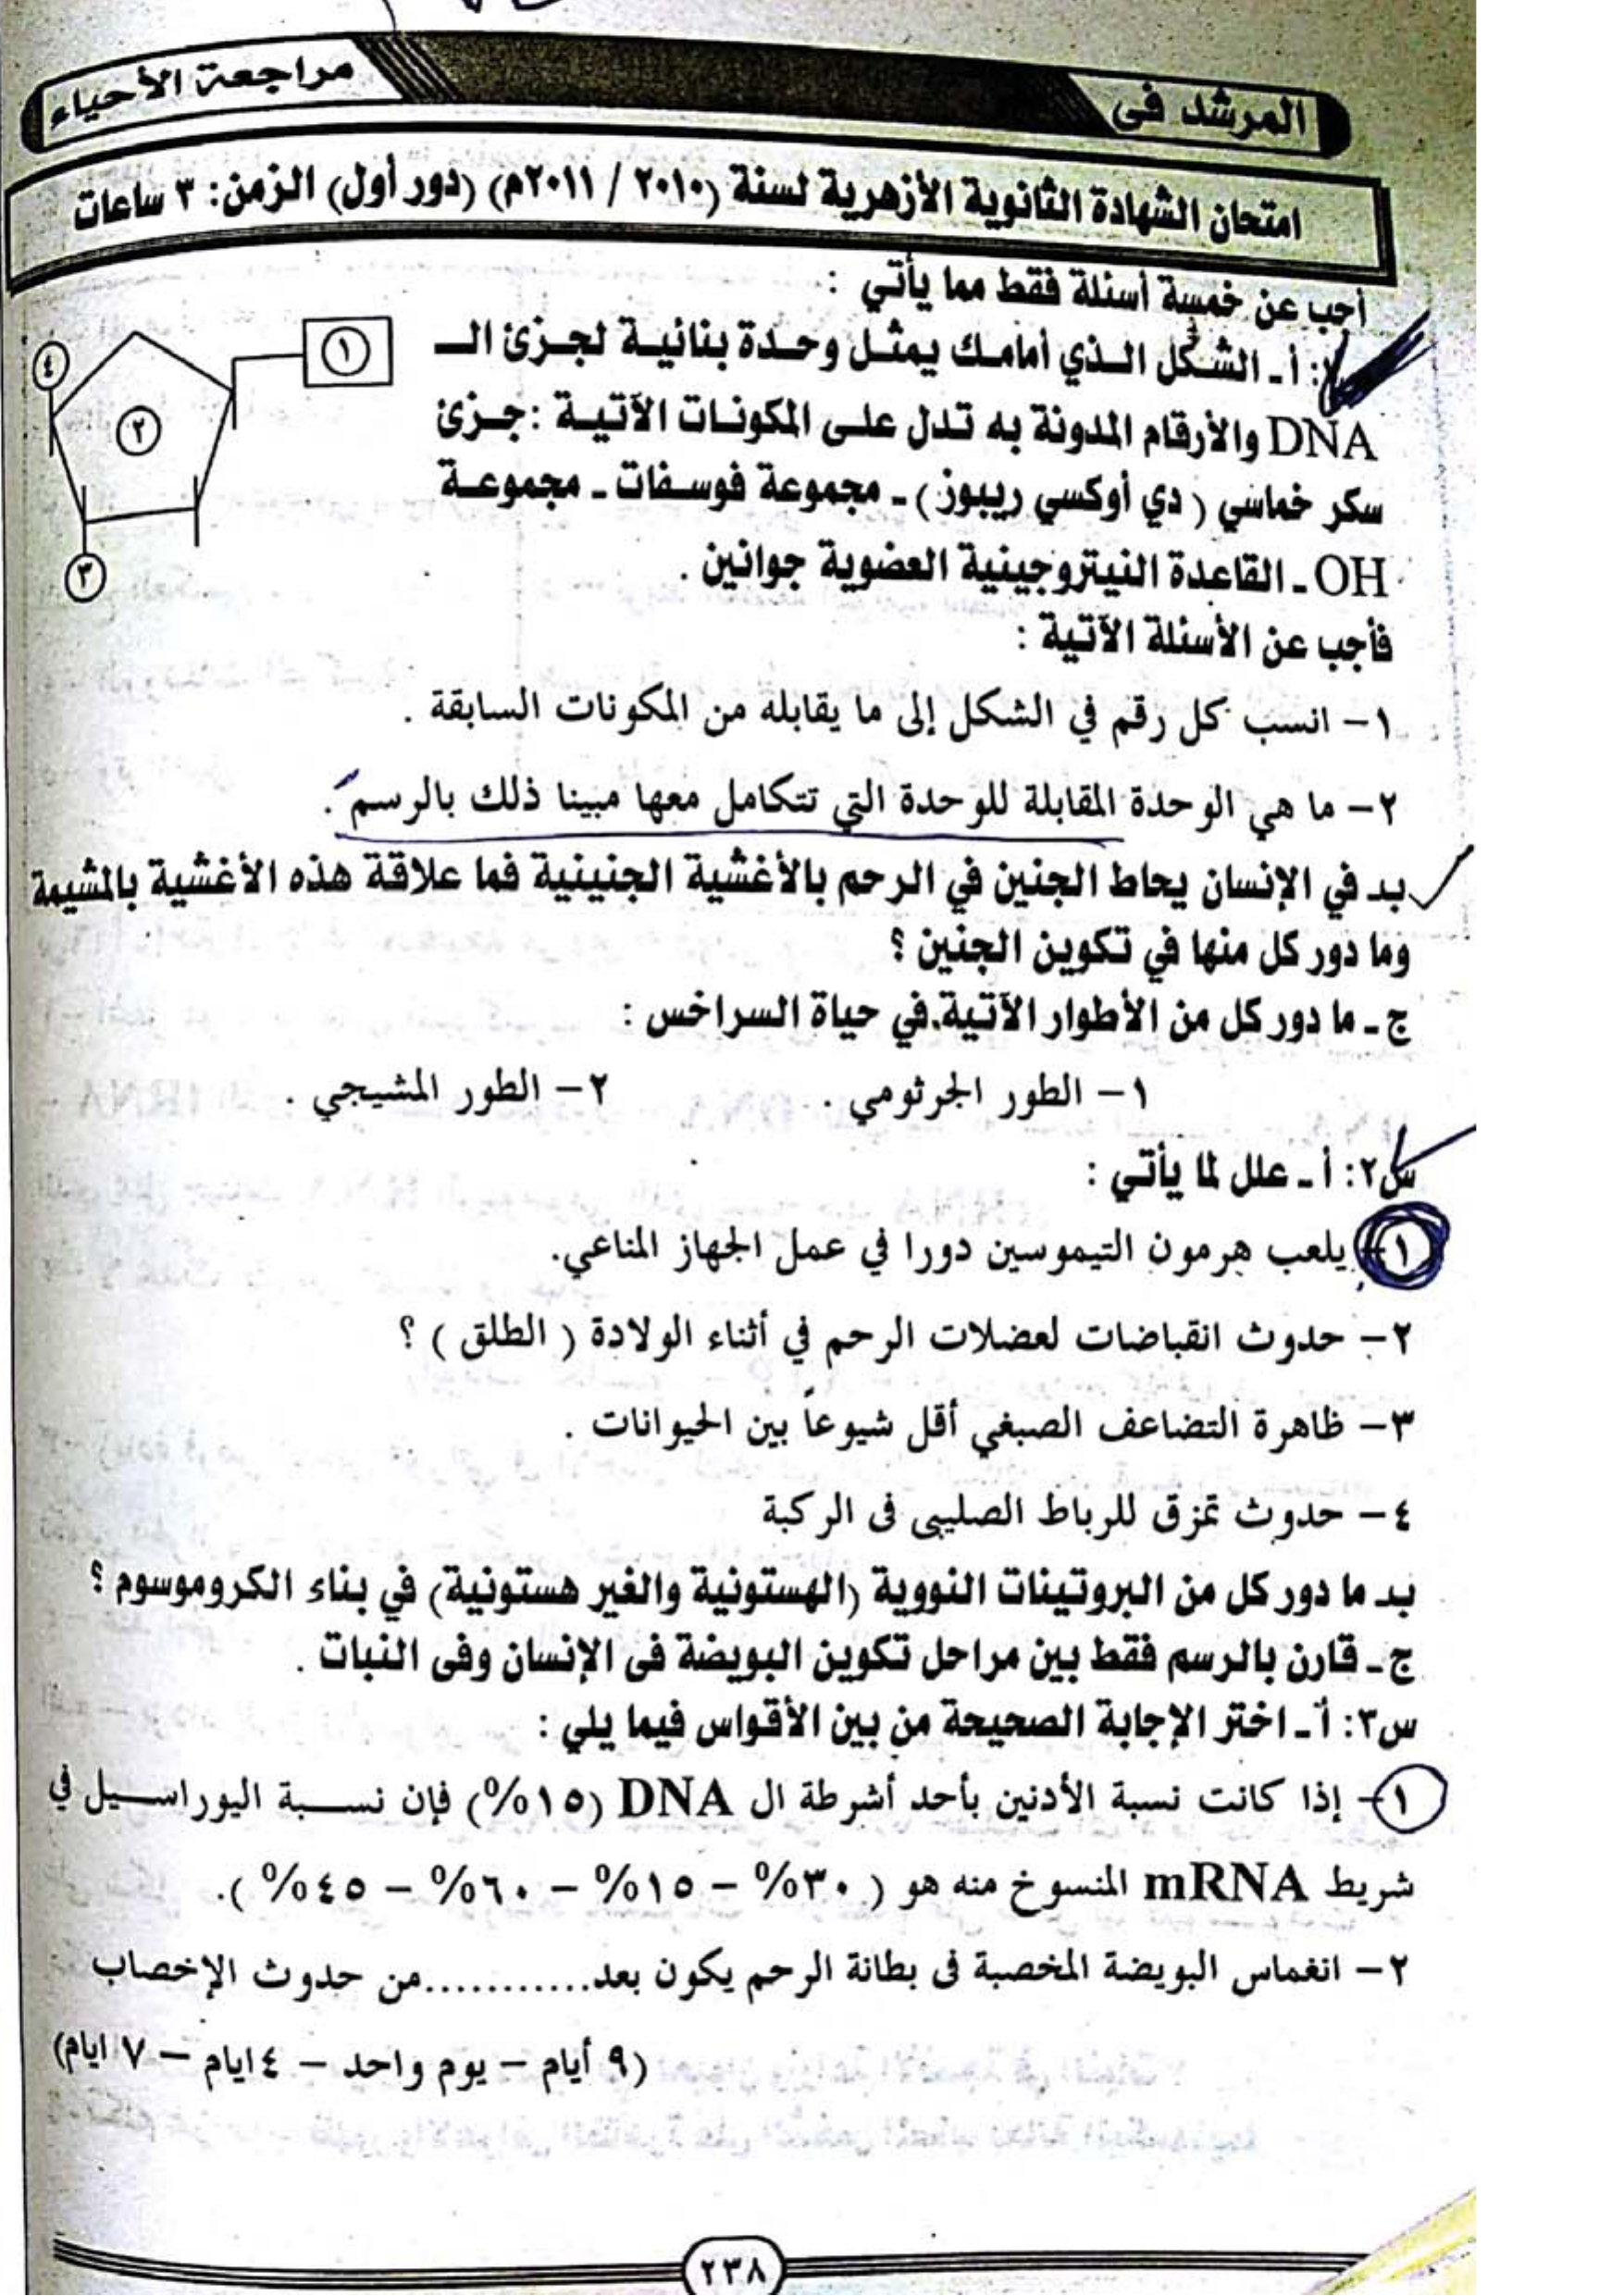 المرشد فى
مراجعة الأحياء
امتحان الشهادة الثانوية الأزهرية لسنة (٢٠١٠ / ٢٠١١م) (دور أول) الزمن: ٣ ساعات
أجب عن خمسة أسئلة فقط مما يأتي :
أ ـ الشكل الذي أمامك يمثل وحدة بنائية لجزئ الـ
DNA والأرقام المدونة به تدل على المكونات الآتية : جزئ
سكر خماسي ( دي أوكسي ريبوز ) ـ مجموعة فوسفات ـ مجموعة
OH ـ القاعدة النيتروجينية العضوية جوانين .
١
٢
٣
٤
فأجب عن الأسئلة الآتية :
١ – انسب كل رقم في الشكل إلى ما يقابله من المكونات السابقة .
٢ – ما هي الوحدة المقابلة للوحدة التي تتكامل معها مبينا ذلك بالرسم .
بـ ـ في الإنسان يحاط الجنين في الرحم بالأغشية الجنينية فما علاقة هذه الأغشية بالمشيمة
وما دور كل منها في تكوين الجنين ؟
ج ـ ما دور كل من الأطوار الآتية في حياة السراخس :
١ – الطور الجرثومي . ٢ – الطور المشيجي .
س٢: أ ـ علل لما يأتي :
١ – يلعب هرمون التيموسين دورا في عمل الجهاز المناعي.
٢ – حدوث انقباضات لعضلات الرحم في أثناء الولادة ( الطلق ) ؟
٣ – ظاهرة التضاعف الصبغي أقل شيوعاً بين الحيوانات .
٤ – حدوث تمزق للرباط الصليبى فى الركبة
بـ ـ ما دور كل من البروتينات النووية (الهستونية والغير هستونية) في بناء الكروموسوم ؟
ج ـ قارن بالرسم فقط بين مراحل تكوين البويضة فى الإنسان وفى النبات .
س٣: أ ـ اختر الإجابة الصحيحة من بين الأقواس فيما يلي :
١ – إذا كانت نسبة الأدنين بأحد أشرطة ال DNA (١٥%) فإن نسبة اليوراسيل في
شريط mRNA المنسوخ منه هو ( ٣٠% – ١٥% – ٦٠% – ٤٥% ).
٢ – انغماس البويضة المخصبة فى بطانة الرحم يكون بعد............من حدوث الإخصاب
(٩ أيام – يوم واحد – ٤ايام – ٧ ايام)
٢٣٨